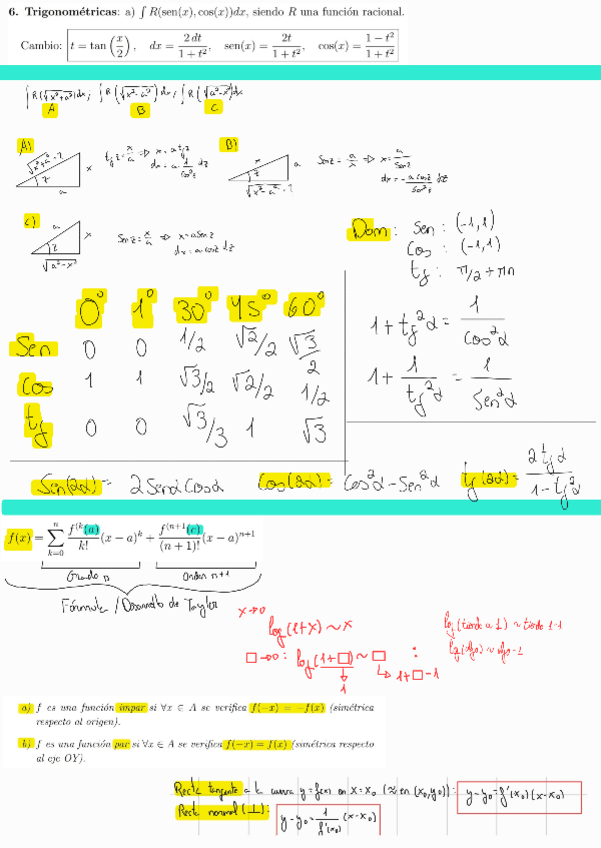 6. Trigonométricas: a) ∫ R(sen(x), cos(x))dx, siendo R una función racional.
Cambio: t = tan(x/2), dx = 2 dt/(1+t²), sen(x) = 2t/(1+t²), cos(x) = (1−t²)/(1+t²)
∫ R(√(x²+a²))dx; ∫ R(√(x²-a²))dx; ∫ R(√(a²-x²))dx
A B C
A) √(x²+a²) = ? x z a tg z = x/a ⇒ x = a tg z
dx = a · 1/cos²z dz
B) x a z √(x²-a²) = ? Sen z = a/x ⇒ x = a/Sen z
dx = - a cos z/Sen²z dz
C) a x z √(a²-x²) Sen z = x/a ⇒ x = a Sen z
dx = a cos z dz
Dom: Sen: (-1,1)
Cos: (-1,1)
tg: π/2 + πn
0° 1° 30° 45° 60°
Sen 0 0 1/2 √2/2 √3/2
Cos 1 1 √3/2 √2/2 1/2
tg 0 0 √3/3 1 √3
1 + tg²α = 1/cos²α
1 + 1/tg²α = 1/Sen²α
Sen(2α) = 2 Senα Cosα Cos(2α) = Cos²α - Sen²α tg(2α) = 2tgα/(1-tg²α)
f(x) = ∑ₖ₌₀ⁿ f⁽ᵏ(a)/k! (x − a)ᵏ + f⁽ⁿ⁺¹(c)/(n+1)! (x − a)ⁿ⁺¹
Grado n Orden n+1
Fórmula / Desarrollo de Taylor
x→0
log(1+x) ~ x
□→0: log(1+□) ~ □ :
1 ↳ 1+□-1
log(tiende a 1) ~ tiende 1-1
log(algo) ~ algo-1
a) f es una función impar si ∀x ∈ A se verifica f(−x) = −f(x) (simétrica
respecto al origen).
b) f es una función par si ∀x ∈ A se verifica f(−x) = f(x) (simétrica respecto
al eje OY).
Recta tangente a la curva y=f(x) en x=x₀ (≈ en (x₀,y₀)): y-y₀=f'(x₀)(x-x₀)
Recta normal (⊥): y-y₀= 1/f'(x₀) (x-x₀)